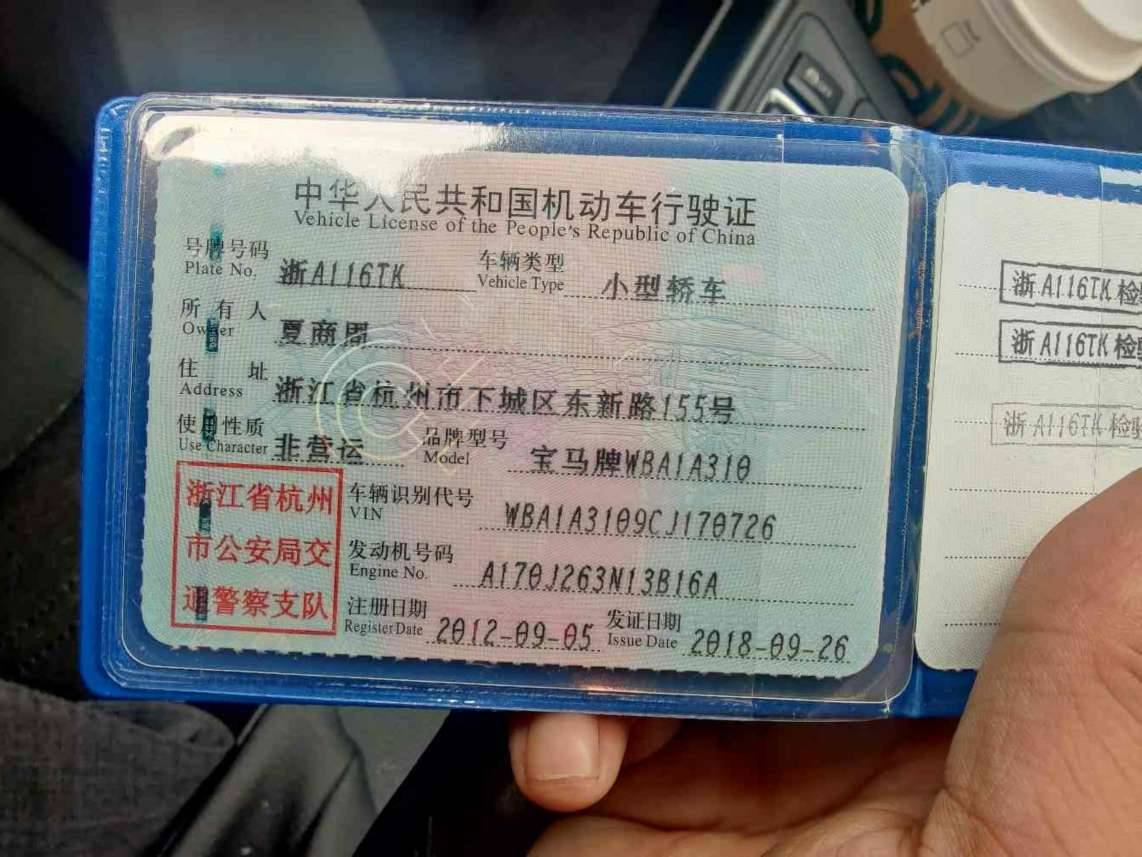 中华人民共和国机动车行驶证
Vehicle License of the People's Republic of China
号牌号码 浙A116TK 车辆类型 小型轿车
Plate No. Vehicle Type
所有人 夏商周
Owner
住址 浙江省杭州市下城区东新路155号
Address
使用性质 非营运 品牌型号 宝马牌WBA1A310
Use Character Model
浙江省杭州
市公安局交
通警察支队
车辆识别代号 WBA1A3109CJ170726
VIN
发动机号码 A170J263N13B16A
Engine No.
注册日期 2012-09-05 发证日期 2018-09-26
Register Date Issue Date
浙A116TK检验
浙A116TK检验
浙A116TK检验